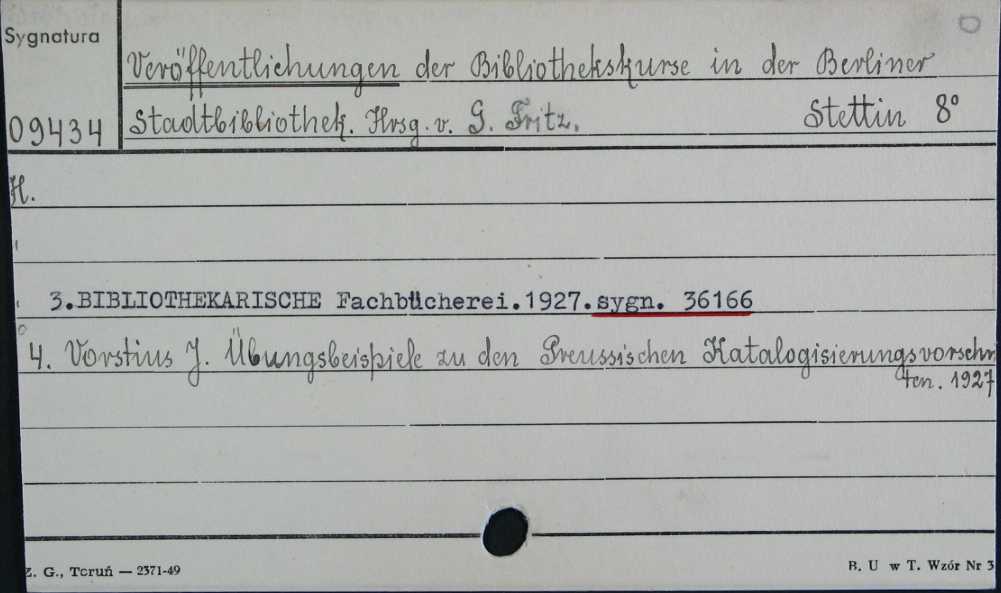 Sygnatura
Veröffentlichungen der Bibliothekskurse in der Berliner
09434 Stadtbibliothek. Hrsg. v. G. Fritz. Stettin 8°
H.
3.BIBLIOTHEKARISCHE Fachbücherei.1927.sygn. 36166
4. Vorstius J. Übungsbeispiele zu den Preussischen Katalogisierungsvorschr
ten. 1927
Z. G., Toruń — 2371-49 B. U w T. Wzór Nr 3